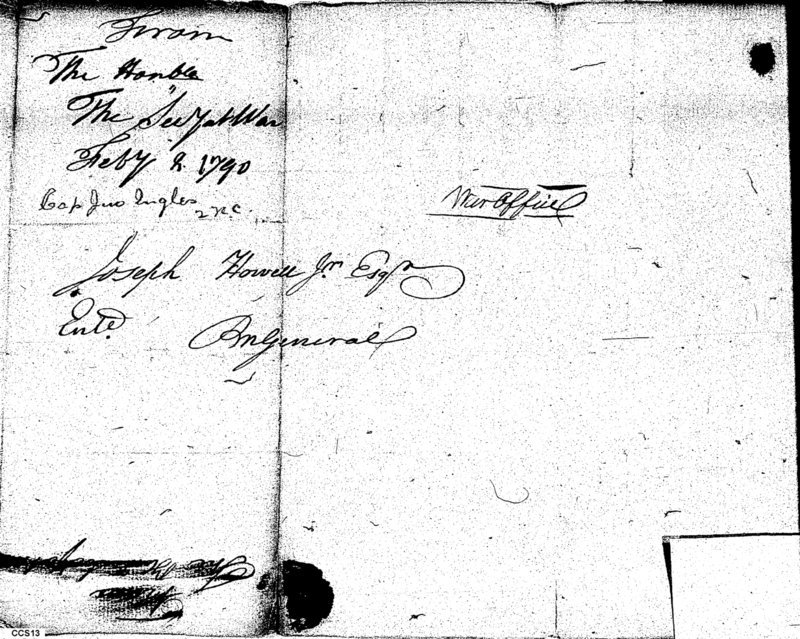 From
The Honble
The Secy at War
Feby 2. 1790
Cap Jno Ingles
2 N.C.
War Office
Joseph Howell Jr. Esqr
Entd.
PmGeneral
CCS13